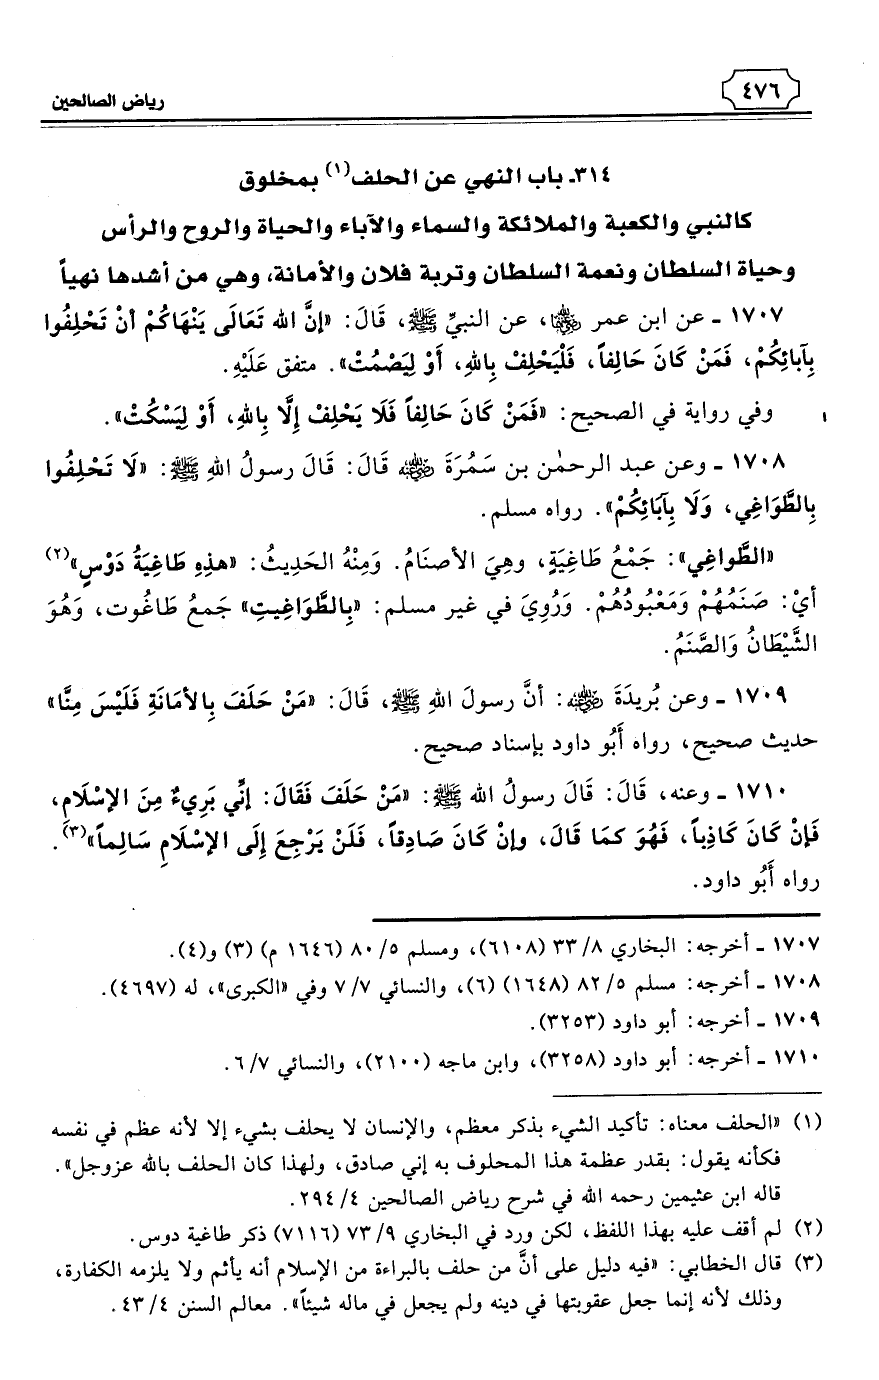 ٤٧٦
رياض الصالحين
٣١٤ـ باب النهي عن الحلف(١) بمخلوق
كالنبي والكعبة والملائكة والسماء والآباء والحياة والروح والرأس
وحياة السلطان ونعمة السلطان وتربة فلان والأمانة، وهي من أشدها نهياً
١٧٠٧ ـ عن ابن عمر رضي الله عنهما، عن النبيِّ ﷺ، قَالَ: «إنَّ الله تَعَالَى يَنْهَاكُمْ أنْ تَحْلِفُوا
بِآبائِكُمْ، فَمَنْ كَانَ حَالِفاً، فَلْيَحْلِفْ بِاللهِ، أَوْ لِيَصْمُتْ». متفق عَلَيْهِ.
وفي رواية في الصحيح: «فَمَنْ كَانَ حَالِفاً فَلَا يَحْلِفْ إلَّا بِاللهِ، أَوْ لِيَسْكُتْ».
١٧٠٨ ـ وعن عبد الرحمٰن بن سَمُرَةَ رضي الله عنه قَالَ: قَالَ رسولُ اللهِ ﷺ: «لَا تَحْلِفُوا
بِالطَّوَاغِي، وَلَا بِآبَائِكُمْ». رواه مسلم.
«الطَّواغِي»: جَمْعُ طَاغِيَةٍ، وهِيَ الأصنَامُ. وَمِنْهُ الحَدِيثُ: «هذِهِ طَاغِيَةُ دَوْسٍ»(٢)
أيْ: صَنَمُهُمْ وَمَعْبُودُهُمْ. وَرُوِيَ في غير مسلم: «بِالطَّوَاغِيتِ» جَمعُ طَاغُوت، وَهُوَ
الشَّيْطَانُ وَالصَّنَمُ.
١٧٠٩ ـ وعن بُريدَةَ رضي الله عنه: أنَّ رسولَ اللهِ ﷺ، قَالَ: «مَنْ حَلَفَ بِالأمَانَةِ فَلَيْسَ مِنَّا»
حديث صحيح، رواه أَبُو داود بإسناد صحيح.
١٧١٠ ـ وعنه، قَالَ: قَالَ رسولُ الله ﷺ: «مَنْ حَلَفَ فَقَالَ: إنِّي بَرِيءٌ مِنَ الإسْلَامِ،
فَإنْ كَانَ كَاذِباً، فَهُوَ كمَا قَالَ، وإنْ كَانَ صَادِقاً، فَلَنْ يَرْجِعَ إلَى الإسْلَامِ سَالِماً»(٣).
رواه أَبُو داود.
١٧٠٧ ـ أخرجه: البخاري ٨/ ٣٣ (٦١٠٨)، ومسلم ٥/ ٨٠ (١٦٤٦ م) (٣) و(٤).
١٧٠٨ ـ أخرجه: مسلم ٥/ ٨٢ (١٦٤٨) (٦)، والنسائي ٧/ ٧ وفي «الكبرى»، له (٤٦٩٧).
١٧٠٩ ـ أخرجه: أبو داود (٣٢٥٣).
١٧١٠ ـ أخرجه: أبو داود (٣٢٥٨)، وابن ماجه (٢١٠٠)، والنسائي ٧/ ٦.
(١) «الحلف معناه: تأكيد الشيء بذكر معظم، والإنسان لا يحلف بشيء إلا لأنه عظم في نفسه
فكأنه يقول: بقدر عظمة هذا المحلوف به إني صادق، ولهذا كان الحلف بالله عزوجل».
قاله ابن عثيمين رحمه الله في شرح رياض الصالحين ٤/ ٢٩٤.
(٢) لم أقف عليه بهذا اللفظ، لكن ورد في البخاري ٩/ ٧٣ (٧١١٦) ذكر طاغية دوس.
(٣) قال الخطابي: «فيه دليل على أنَّ من حلف بالبراءة من الإسلام أنه يأثم ولا يلزمه الكفارة،
وذلك لأنه إنما جعل عقوبتها في دينه ولم يجعل في ماله شيئاً». معالم السنن ٤/ ٤٣.